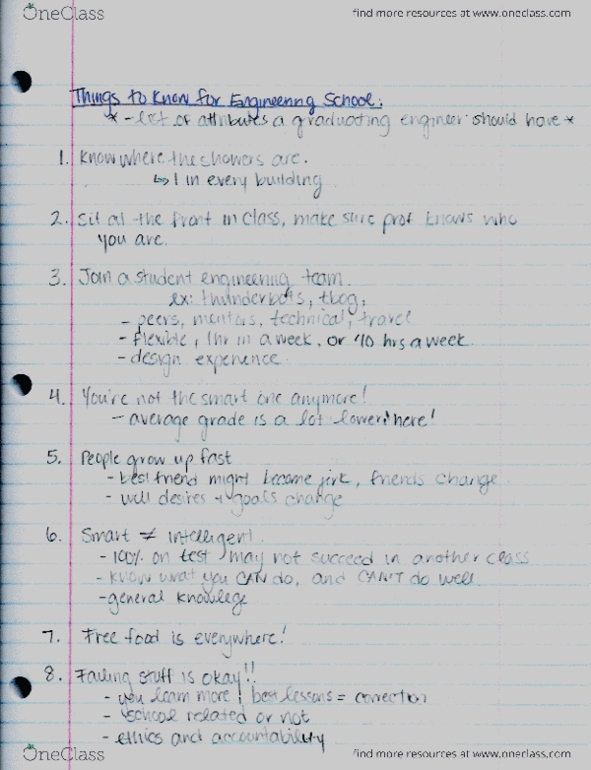 OneClass
find more resources at www.oneclass.com
Things to Know for Engineering School:
* - list of attributes a graduating engineer should have *
1. Know where the showers are.
↳ 1 in every building
2. Sit at the front in class, make sure prof knows who
you are.
3. Join a student engineering team.
ex: thunderbots, tbog,
- peers, mentors, technical, travel
- flexible, 1hr in a week, or 40 hrs a week.
- design experience.
4. You're not the smart one anymore!
- average grade is a lot lower here!
5. People grow up fast
- best friend might become jerk, friends change
- will desires + goals change
6. Smart ≠ intelligent.
- 100% on test, may not succeed in another class
- know what you CAN do, and CAN'T do well.
- general knowlege
7. Free food is everywhere!
8. Failing stuff is okay!!
- you learn more, best lessons = correction
- school related or not
- ethics and accountability
OneClass
find more resources at www.oneclass.com